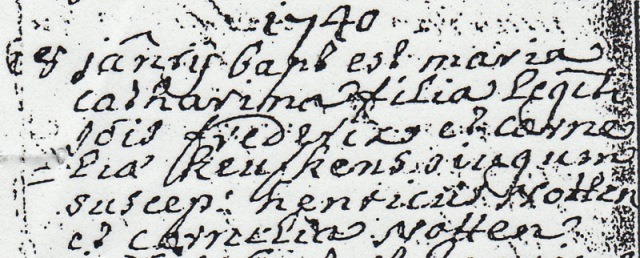 1740
18 janrij bapt est maria
catharina filia legiti
fredericx et corne
lia keuskens
suscep: henricus Notten
et cornelia Notten